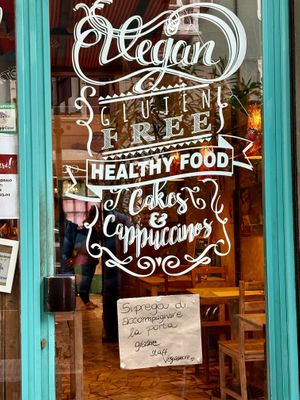 Vegan
GLUTEN
FREE
HEALTHY FOOD
Cakes
&
Cappuccinos
Si prega di
accompagnare
la porta
grazie
staff